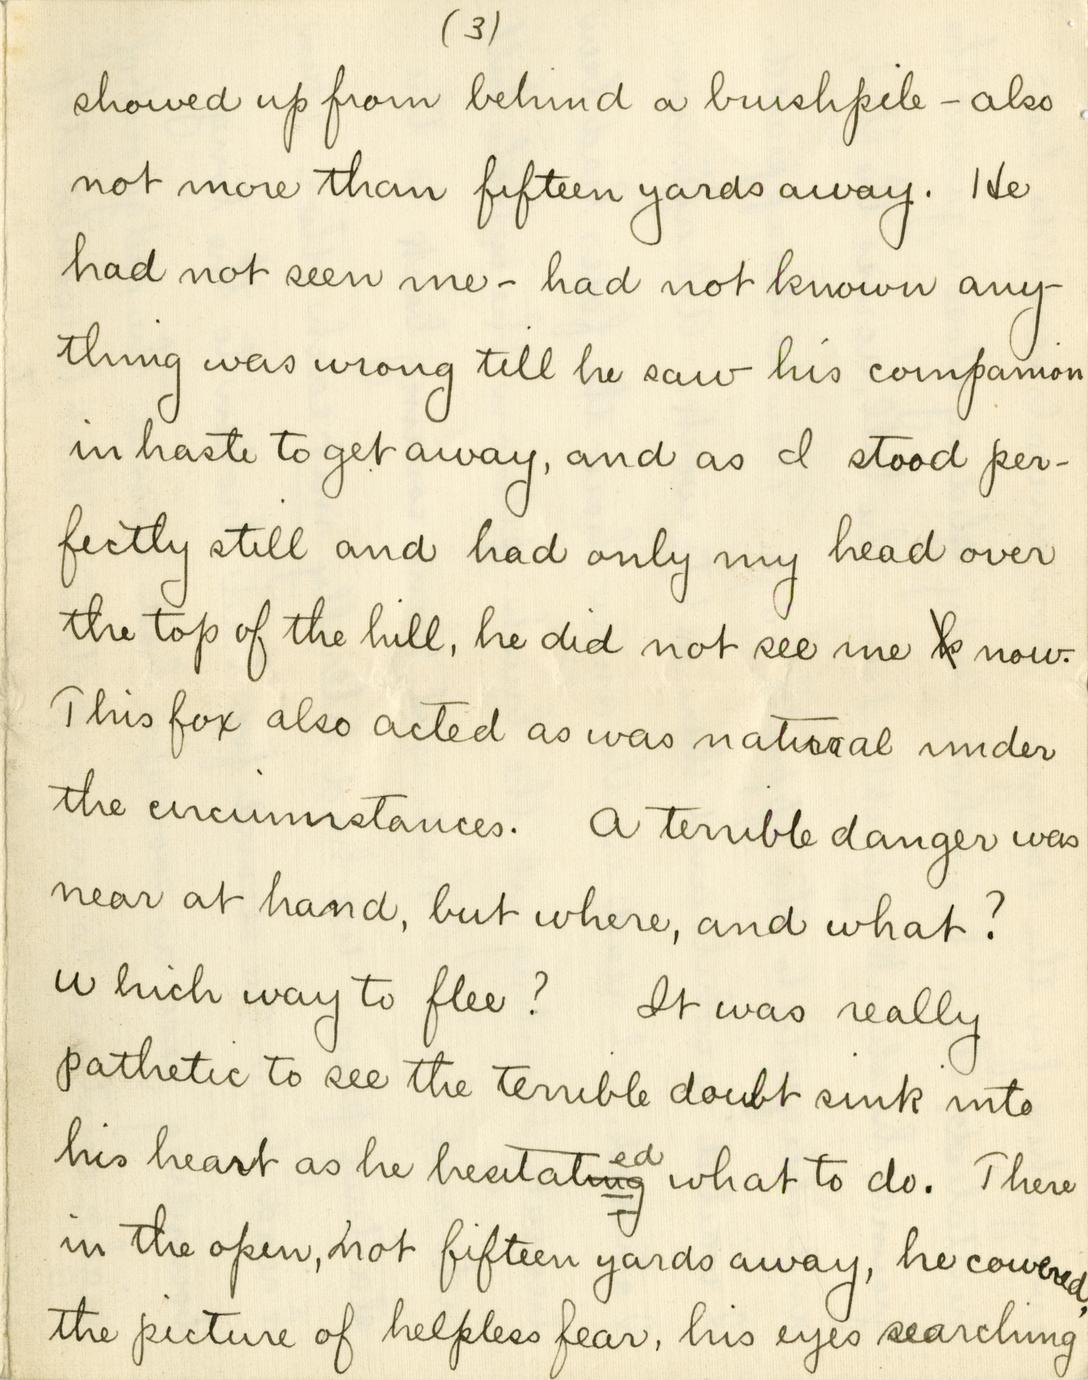 (3)
showed up from behind a brushpile - also
not more than fifteen yards away. He
had not seen me - had not known any-
thing was wrong till he saw his companion
in haste to get away, and as I stood per-
fectly still and had only my head over
the top of the hill, he did not see me k now.
This fox also acted as was natural under
the circumstances. A terrible danger was
near at hand, but where, and what?
Which way to flee? It was really
pathetic to see the terrible doubt sink into
his heart as he hesitating ed what to do. There
in the open, not fifteen yards away, he cowered,
the picture of helpless fear, his eyes searching